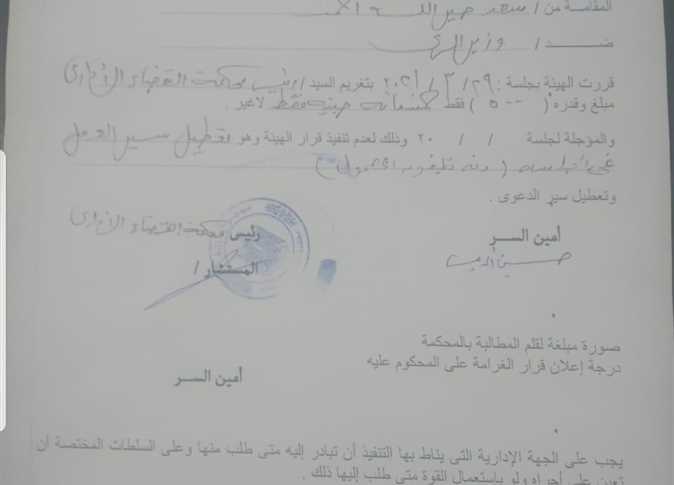 المقامة من / سعد
ضــــد / وزير الرى
قررت الهيئة بجلسة : ٢٩ / ٣ / ٢٠٢١ بتغريم السيد / رئيس محكمة القضاء الإدارى
مبلغ وقدره ( ٥٠٠ ) فقط خمسمائة جنيه فقط لاغير .
والمؤجلة لجلسة / / ٢٠ وذلك لعدم تنفيذ قرار الهيئة وهو تعطيل سير العمل
( رنة تليفونه المحمول )
وتعطيل سير الدعوى .
أمين الســر
رئيس محكمة القضاء الإدارى
المستشار /
صورة مبلغة لقلم المطالبة بالمحكمة
درجة إعلان قرار الغرامة على المحكوم عليه
أمين الســر
يجب على الجهة الإدارية التى يناط بها التنفيذ أن تبادر إليه متى طلب منها وعلى السلطات المختصة أن
تعين على أجراه ولو باستعمال القوة متى طلب إليها ذلك .